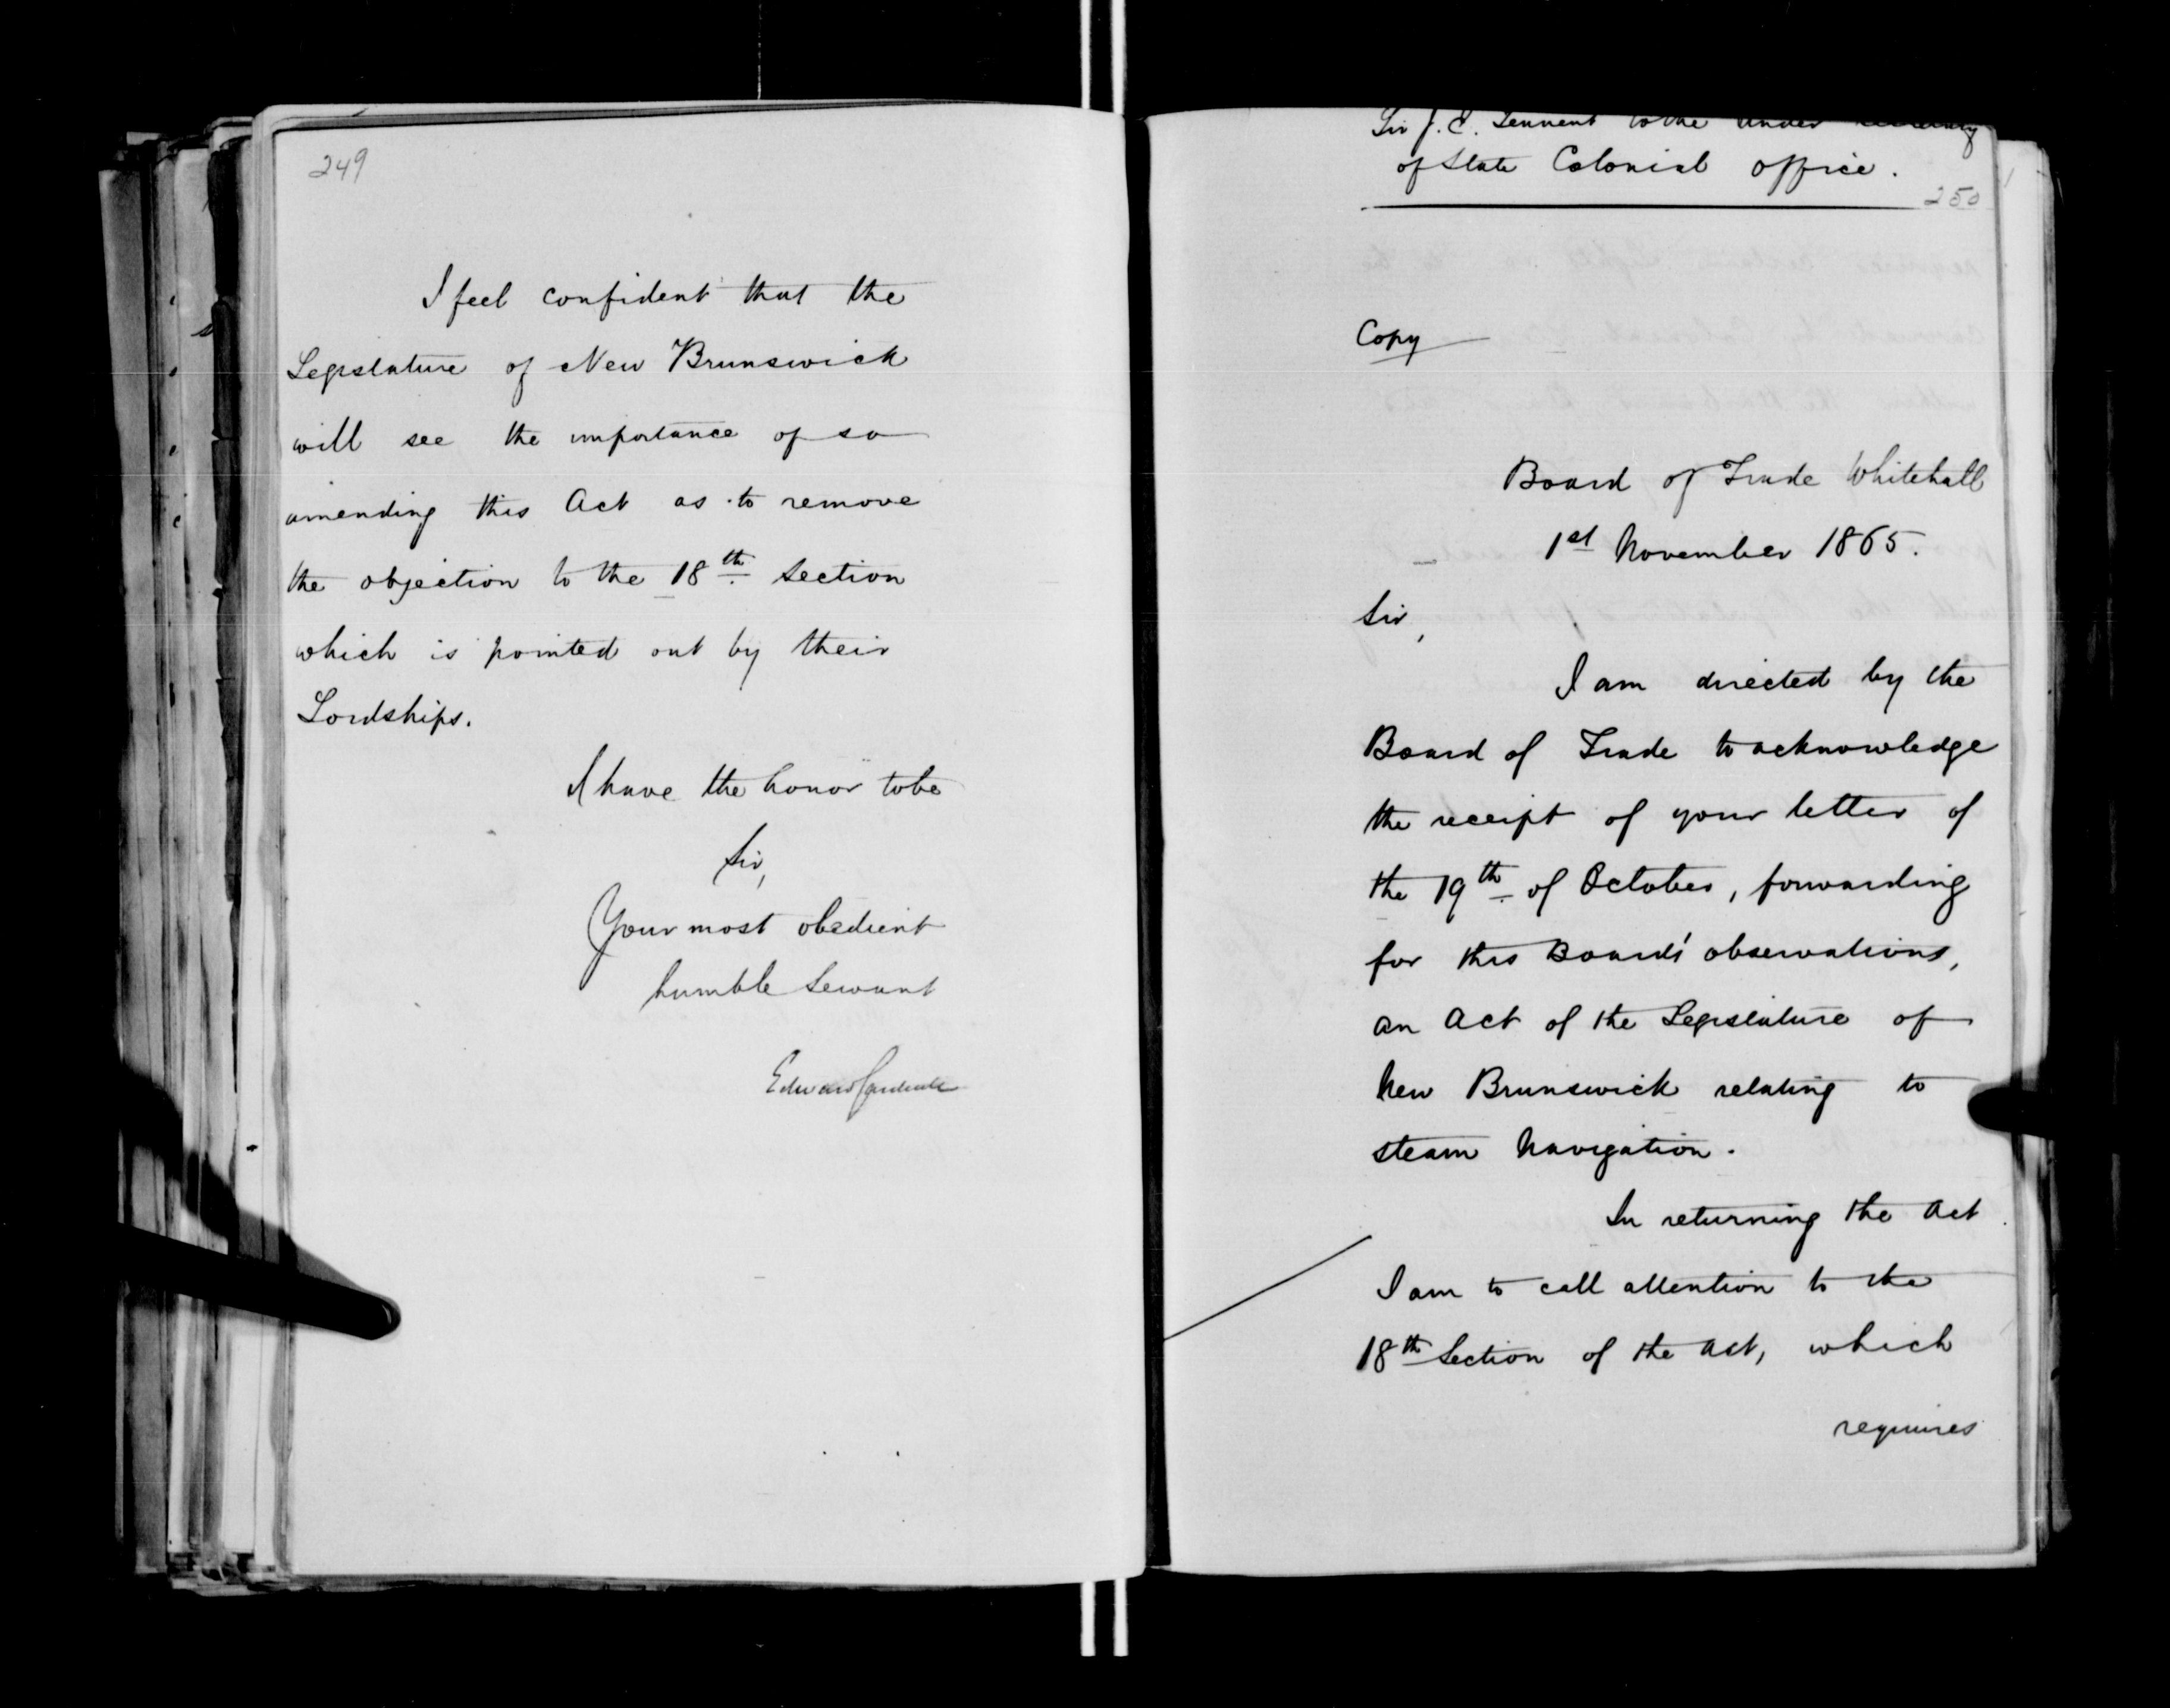 249
I feel confident that the
Legislature of New Brunswick
will see the importance of so
amending this Act as to remove
the objection to the 18th Section
which is pointed out by their
Lordships.
I have the honor to be
Sir,
Your most obedient
humble Servant
Edward Cardwell
Sir J. E. Tennent to the Under Secretary
of State Colonial Office.
250
Copy
Board of Trade Whitehall
1st November 1865.
Sir,
I am directed by the
Board of Trade to acknowledge
the receipt of your letter of
the 19th of October, forwarding
for this Board's observations,
an Act of the Legislature of
New Brunswick relating to
steam Navigation.
In returning the Act
I am to call attention to the
18th Section of the Act, which
requires